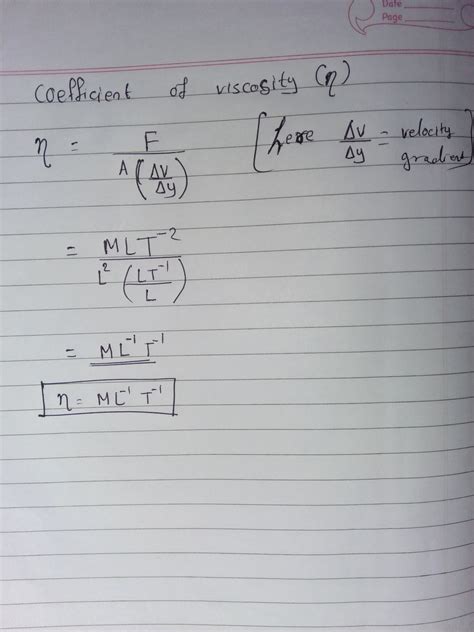 Date
Page
Coefficient of viscosity (η)
η = F / A (Δv/Δy) [here Δv/Δy = velocity gradient]
= MLT⁻² / L² (LT⁻¹/L)
= ML⁻¹T⁻¹
η = ML⁻¹T⁻¹